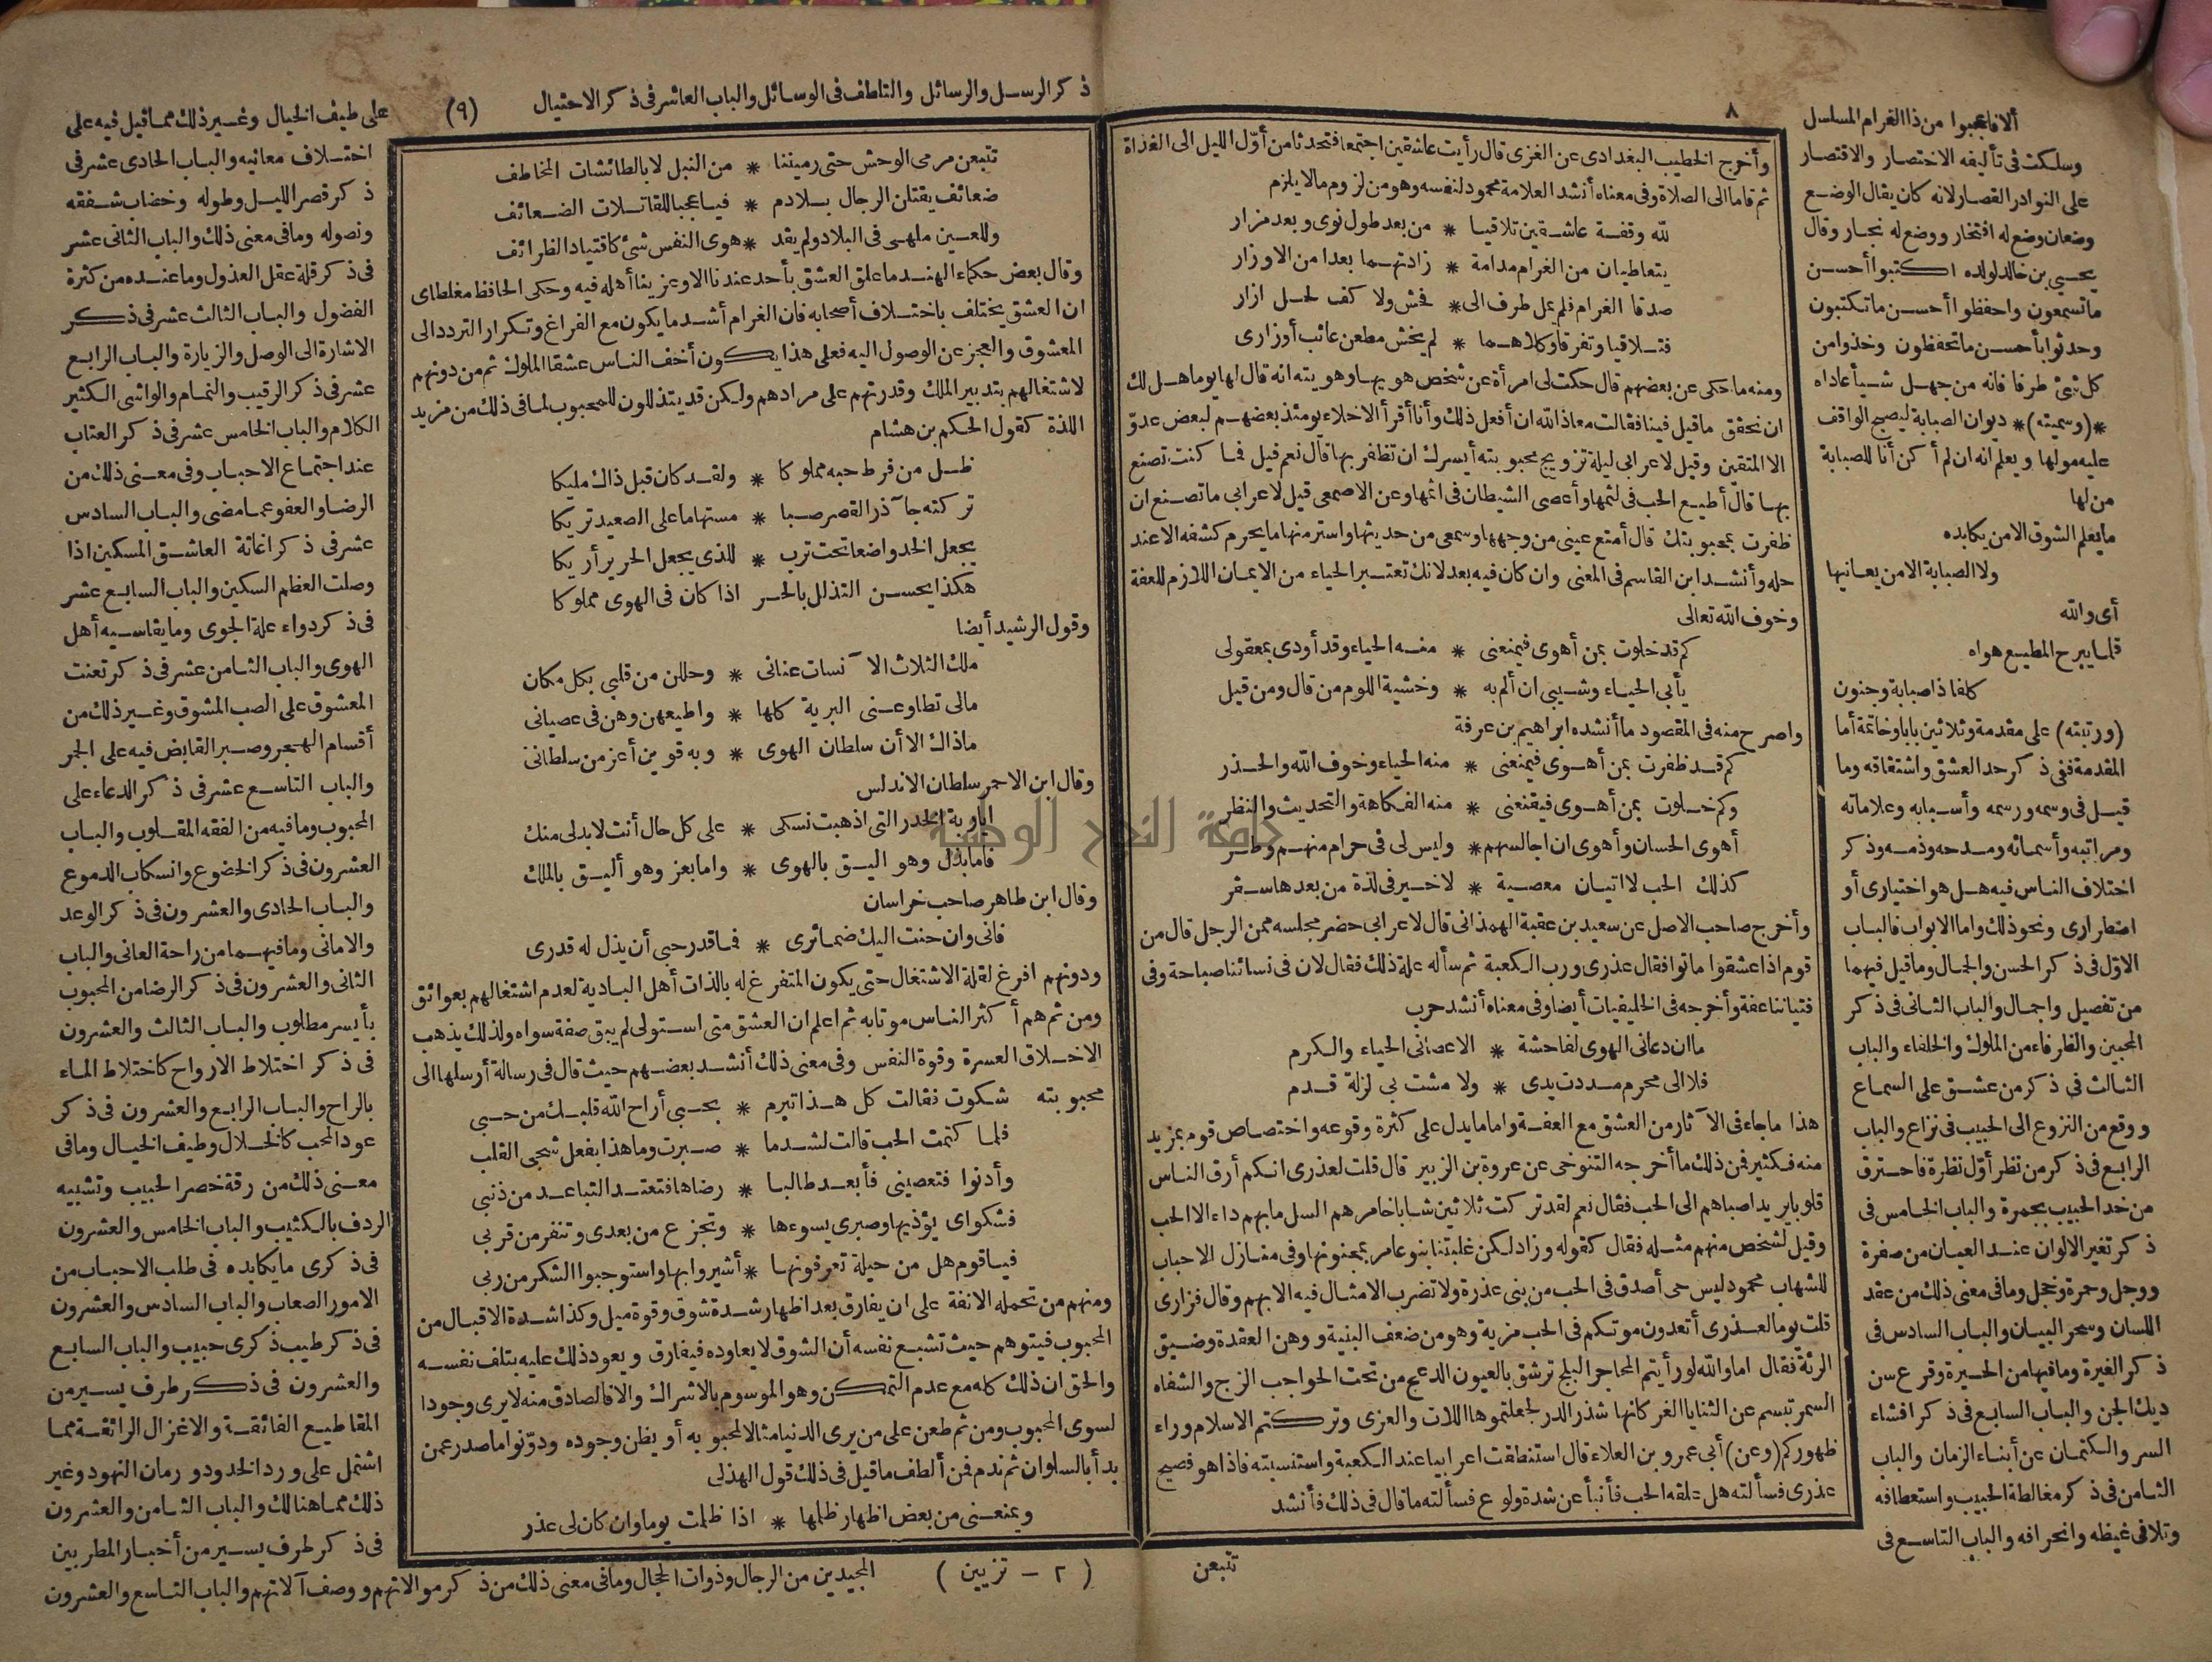 ٨
وأخرج الخطيب البغدادى عن الغزى قال رأيت عاشقين اجتمعا فتحدثا من أوّل الليل الى الغداة
ثم قاما الى الصلاة وفى معناه أنشد العلامة محمود لنفسه وهو من لزوم مالا يلزم
لله وقفة عاشقين تلاقيا * من بعد طول نوى وبعد مزار
يتعاطيان من الغرام مدامة * زادتهما بعدا من الاوزار
صدقا الغرام فلم يمل طرف الى * فحش ولا كف لحل ازار
فتلاقيا وتفرقا وكلاهما * لم يخش مطعن عائب أوزارى
ومنه ما حكى عن بعضهم قال حكت لى امرأة عن شخص هو يهاوهويته انه قال لها يوما هل لك
ان نحقق ماقيل فينا فقالت معاذ الله ان أفعل ذلك وأنا أقرأ الاخلاء يومئذ بعضهم لبعض عدوّ
الا المتقين وقيل لاعرابى ليلة تزويج محبوبته أيسرك ان تظفر بها قال نعم قيل فما كنت تصنع
بها قال أطيع الحب فى لثمها وأعصى الشيطان فى اثمها وعن الاصمعى قيل لاعرابى ماتصنع ان
ظفرت بمحبوبتك قال أمتع عينى من وجهها وسمعى من حديثها واستر منها مايحرم كشفه الاعند
حله وأنشد ابن القاسم فى المعنى وان كان فيه بعد لانك تعتبر الحياء من الايمان اللازم للعفة
وخوف الله تعالى
كم قد خلوت بمن أهوى فيمنعنى * منه الحياء وقد أودى بمعقولى
يأبى الحياء وشيبى ان ألم به * وخشية اللوم من قال ومن قيل
واصرح منه فى المقصود ما أنشده ابراهيم بن عرفة
كم قد ظفرت بمن أهوى فيمنعنى * منه الحياء وخوف الله والحذر
وكم خلوت بمن أهوى فيقنعنى * منه الفكاهة والتحديث والنظر
أهوى الحسان وأهوى ان اجالسهم * وليس لى فى حرام منهم وطر
كذلك الحب لا اتيان معصية * لاخير فى لذة من بعدها سقر
وأخرج صاحب الاصل عن سعيد بن عقبة الهمذانى قال لاعرابى حضر مجلسه ممن الرجل قال من
قوم اذا عشقوا ماتوا فقال عذرى ورب الكعبة ثم سأله علة ذلك فقال لان فى نسائنا صباحة وفى
فتياننا عفة وأخرجه فى الخليفيات أيضا وفى معناه أنشد حرب
ما ان دعانى الهوى لفاحشة * الا عصانى الحياء والكرم
فلا الى محرم مددت يدى * ولا مشت بى لزلة قدم
هذا ماجاء فى الآثار من العشق مع العفة واما مايدل على كثرة وقوعه واختصاص قوم بمزيد
منه فكثير فمن ذلك ما أخرجه التنوخى عن عروة بن الزبير قال قلت لعذرى انكم أرق الناس
قلوبا يريد اصباهم الى الحب فقال نعم لقد تركت ثلاثين شابا خامرهم السل مابهم داء الا الحب
وقيل لشخص منهم مثله فقال كقوله وزاد لكن غلبتنا بنو عامر بمجنونها وفى منازل الاحباب
للشهاب محمود ليس حى أصدق فى الحب من بنى عذرة ولا تضرب الامثال فيه الا بهم وقال فزارى
قلت يوما لعذرى أتعدون موتكم فى الحب مزية وهو من ضعف البنية ووهن العقدة وضيق
الرئة فقال اما والله لو رأيتم المحاجر البلج ترشق بالعيون الدعج من تحت الحواجب الزج والشفاه
السمر تبسم عن الثنايا الغر كانها شذر الدر لجعلتموها اللات والعزى وتركتم الاسلام وراء
ظهوركم (وعن) أبى عمرو بن العلاء قال استنطقت اعرابيا عند الكعبة واستنسبته فاذا هو فصيح
عذرى فسألته هل علقه الحب فأنبأ عن شدة ولوع فسألته ماقال فى ذلك فأنشد
تتبعن
ألا فاعجبوا من ذا الغرام المسلسل
وسلكت فى تأليفه الاختصار والاقتصار
على النوادر القصار لانه كان يقال الوضع
وضعان وضع له افتخار ووضع له نجار وقال
يحيى بن خالد لولده اكتبوا أحسن
ماتسمعون واحفظوا أحسن ماتكتبون
وحدثوا بأحسن ماتحفظون وخذوا من
كل شئ طرفا فانه من جهل شيأ عاداه
*(وسميته)* ديوان الصبابة ليصبح الواقف
عليه مولها ويعلم انه ان لم أكن أنا للصبابة
من لها
مايعلم الشوق الا من يكابده
ولا الصبابة الا من يعانيها
أى والله
قلما يبرح المطيع هواه
كلفا ذا صبابة وجنون
(ورتبته) على مقدمة وثلاثين بابا وخاتمة أما
المقدمة ففى ذكر حد العشق واشتقاقه وما
قيل فى وسمه ورسمه وأسبابه وعلاماته
ومراتبه وأسمائه ومدحه وذمه وذكر
اختلاف الناس فيه هل هو اختيارى أو
اضطرارى ونحو ذلك واما الابواب فالباب
الاوّل فى ذكر الحسن والجمال وماقيل فيهما
من تفصيل واجمال والباب الثانى فى ذكر
المحبين والظرفاء من الملوك والخلفاء والباب
الثالث فى ذكر من عشق على السماع
ووقع من النزوع الى الحبيب فى نزاع والباب
الرابع فى ذكر من نظر أوّل نظرة فاحترق
من خد الحبيب بجمرة والباب الخامس فى
ذكر تغير الالوان عند العيان من صفرة
ووجل وحمرة وخجل ومافى معنى ذلك من عقد
اللسان وسحر البيان والباب السادس فى
ذكر الغيرة ومافيها من الحيرة وقرع سن
ديك الجن والباب السابع فى ذكر افشاء
السر والكتمان عن أبناء الزمان والباب
الثامن فى ذكر مغالطة الحبيب واستعطافه
وتلافى غيظه وانحرافه والباب التاسع فى
ذكر الرسل والرسائل والتلطف فى الوسائل والباب العاشر فى ذكر الاحتيال
(٩)
على طيف الخيال وغير ذلك مماقيل فيه على
اختلاف معانيه والباب الحادى عشر فى
ذكر قصر الليل وطوله وخضاب شفقه
ونصوله ومافى معنى ذلك والباب الثانى عشر
فى ذكر قلة عقل العذول وماعنده من كثرة
الفضول والباب الثالث عشر فى ذكر
الاشارة الى الوصل والزيارة والباب الرابع
عشر فى ذكر الرقيب والنمام والواشى الكثير
الكلام والباب الخامس عشر فى ذكر العتاب
عند اجتماع الاحباب وفى معنى ذلك من
الرضا والعفو عما مضى والباب السادس
عشر فى ذكر اغاثة العاشق المسكين اذا
وصلت العظم السكين والباب السابع عشر
فى ذكر دواء علة الجوى ومايقاسيه أهل
الهوى والباب الثامن عشر فى ذكر تعنت
المعشوق على الصب المشوق وغير ذلك من
أقسام الهجر وصبر القابض فيه على الجمر
والباب التاسع عشر فى ذكر الدعاء على
المحبوب ومافيه من الفقه المقلوب والباب
العشرون فى ذكر الخضوع وانسكاب الدموع
والباب الحادى والعشرون فى ذكر الوعد
والامانى ومافيهما من راحة العانى والباب
الثانى والعشرون فى ذكر الرضا من المحبوب
بأيسر مطلوب والباب الثالث والعشرون
فى ذكر اختلاط الارواح كاختلاط الماء
بالراح والباب الرابع والعشرون فى ذكر
عود المحب كالخلال وطيف الخيال ومافى
معنى ذلك من رقة خصر الحبيب وتشبيه
الردف بالكثيب والباب الخامس والعشرون
فى ذكرى مايكابده فى طلب الاحباب من
الامور الصعاب والباب السادس والعشرون
فى ذكر طيب ذكرى حبيب والباب السابع
والعشرون فى ذكر طرف يسير من
المقاطيع الفائقة والاغزال الرائقة مما
اشتمل على ورد الخدود ورمان النهود وغير
ذلك مما هنالك والباب الثامن والعشرون
فى ذكر طرف يسير من أخبار المطربين
المجيدين من الرجال وذوات الحجال ومافى معنى ذلك من ذكر موالاتهم ووصف آلاتهم والباب التاسع والعشرون
تتبعن مرمى الوحش حتى رميننا * من النبل لا بالطائشات المخاطف
ضعائف يقتلن الرجال بلادم * فيا عجبا للقاتلات الضعائف
وللعين ملهى فى البلاد ولم يقد * هوى النفس شئ كاقتياد الظرائف
وقال بعض حكماء الهند ماعلق العشق بأحد عندنا الا وعزينا أهله فيه وحكى الحافظ مغلطاى
ان العشق يختلف باختلاف أصحابه فان الغرام أشد مايكون مع الفراغ وتكرار التردد الى
المعشوق والعجز عن الوصول اليه فعلى هذا يكون أخف الناس عشقا الملوك ثم من دونهم
لاشتغالهم بتدبير الملك وقدرتهم على مرادهم ولكن قد يتذللون للمحبوب لما فى ذلك من مزيد
اللذة كقول الحكم بن هشام
ظل من فرط حبه مملوكا * ولقد كان قبل ذاك مليكا
تركته جآذر القصر صبا * مستهاما على الصعيد تريكا
يجعل الخد واضعا تحت ترب * للذى يجعل الحرير أريكا
هكذا يحسن التذلل بالحر اذا كان فى الهوى مملوكا
وقول الرشيد أيضا
ملك الثلاث الآنسات عنانى * وحللن من قلبى بكل مكان
مالى تطاوعنى البرية كلها * واطيعهن وهن فى عصيانى
ماذاك الا أن سلطان الهوى * وبه قوين أعز من سلطانى
وقال ابن الاحمر سلطان الاندلس
أيا ربة الخدر التى اذهبت نسكى * على كل حال أنت لابد لى منك
فاما بذل وهو اليق بالهوى * واما بعز وهو أليق بالملك
وقال ابن طاهر صاحب خراسان
فانى وان حنت اليك ضمائرى * فما قدر حبى أن يذل له قدرى
ودونهم افرغ لقلة الاشتغال حتى يكون المتفرغ له بالذات أهل البادية لعدم اشتغالهم بعوائق
ومن ثم هم أكثر الناس موتا به ثم اعلم ان العشق متى استولى لم يبق صفة سواه ولذلك يذهب
الاخلاق العسرة وقوة النفس وفى معنى ذلك أنشد بعضهم حيث قال فى رسالة أرسلها الى
محبوبته شكوت فقالت كل هذا تبرم * بحبى أراح الله قلبك من حبى
فلما كتمت الحب قالت لشدما * صبرت وما هذا بفعل شجى القلب
وأدنوا فتعصينى فأبعد طالبا * رضاها فتعتد التباعد من ذنبى
فشكواى يؤذيها وصبرى يسوءها * وتجزع من بعدى وتنفر من قربى
فيا قوم هل من حيلة تعرفونها * أشيروا بها واستوجبوا الشكر من ربى
ومنهم من تحمله الانفة على ان يفارق بعد اظهار شدة شوق وقوة ميل وكذا شدة الاقبال من
المحبوب فيتوهم حيث تشبع نفسه أن الشوق لا يعاوده فيفارق ويعود ذلك عليه بتلف نفسه
والحق ان ذلك كله مع عدم التمكن وهو الموسوم بالاشراك والا فالصادق منه لا يرى وجودا
لسوى المحبوب ومن ثم طعن على من يرى الدنيا مثالا لمحبوبه أو يظن وجوده ودوّنوا ماصدر عمن
بدأ بالسلوان ثم ندم فمن ألطف ماقيل فى ذلك قول الهذلى
ويمنعنى من بعض اظهار ظلمها * اذا ظلمت يوما وان كان لى عذر
(٢ - تزيين)